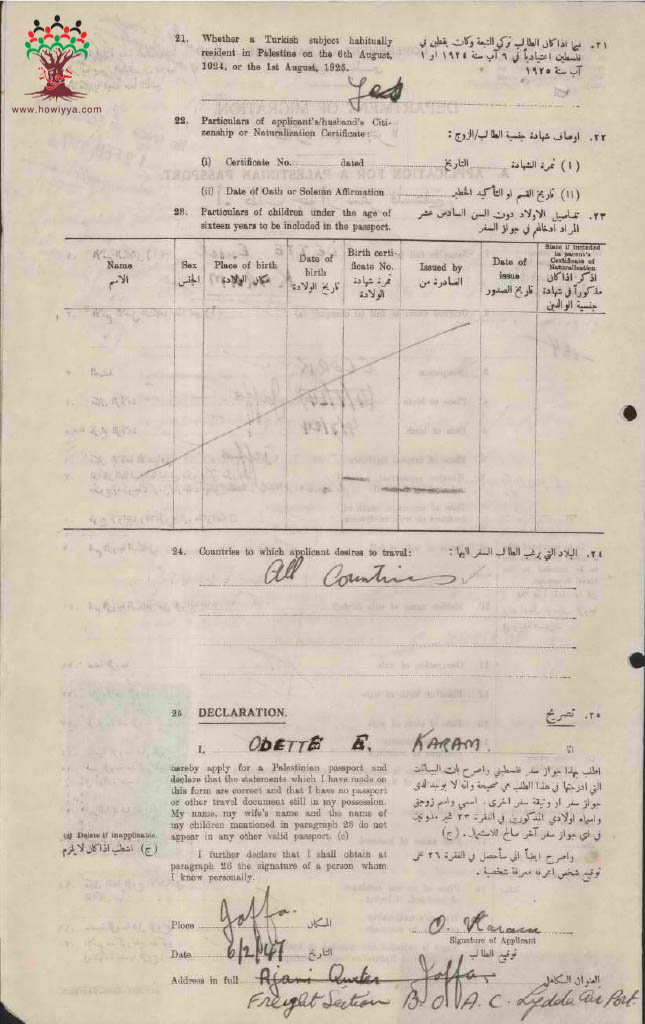 www.howiyya.com
21. Whether a Turkish subject habitually
resident in Palestine on the 6th August,
1924, or the 1st August, 1925.
٢١. فيما اذا كان الطالب تركي التبعة وكان يقطن في
فلسطين اعتيادياً في ٦ آب سنة ١٩٢٤ او ١
آب سنة ١٩٢٥
Yes
22. Particulars of applicant's/husband's Citi-
zenship or Naturalization Certificate:
٢٢. اوصاف شهادة جنسية الطالب/الزوج :
(i) Certificate No. dated التاريخ (١) نمرة الشهادة
(ii) Date of Oath or Solemn Affirmation (١١) تاريخ القسم او التأكيد الخطير
23. Particulars of children under the age of
sixteen years to be included in the passport.
٢٣. تفاصيل الاولاد دون السن السادس عشر
المراد ادخالهم في جواز السفر
Name الاسم
Sex الجنس
Place of birth مكان الولادة
Date of birth تاريخ الولادة
Birth certi-ficate No. نمرة شهادة الولادة
Issued by الصادرة من
Date of issue تاريخ الصدور
State if included in parent's Certificate of Naturalization اذكر اذا كان مذكوراً في شهادة جنسية الوالدين
24. Countries to which applicant desires to travel: ٢٤. البلاد التي يرغب الطالب السفر اليها :
All Countries
25. DECLARATION. ٢٥. تصريح
I, ODETTE E. KARAM. انا
hereby apply for a Palestinian passport and
declare that the statements which I have made on
this form are correct and that I have no passport
or other travel document still in my possession.
My name, my wife's name and the name of
my children mentioned in paragraph 23 do not
appear in any other valid passport. (c)
اطلب بهذا جواز سفر فلسطيني واصرح بان البيانات
التي ادرجتها في هذا الطلب هي صحيحة وانه لا يوجد لدي
جواز سفر او وثيقة سفر اخرى. اسمي واسم زوجتي
واسماء اولادي المذكورين في الفقرة ٢٣ غير مدونين
في اي جواز سفر آخر صالح للاستعمال. (ج)
(c) Delete if inapplicable.
(ج) اشطب اذا كان لا يلزم
I further declare that I shall obtain at
paragraph 26 the signature of a person whom
I know personally.
واصرح ايضاً اني سأحصل في الفقرة ٢٦ على
توقيع شخص اعرفه معرفة شخصية.
Place Jaffa. المكان
O. Karam
Signature of Applicant
توقيع الطالب
Date 6/2/47 التاريخ
Address in full Ajami Quarter Jaffa. العنوان الكامل
Freight Section B.O.A.C. Lydda Air Port.